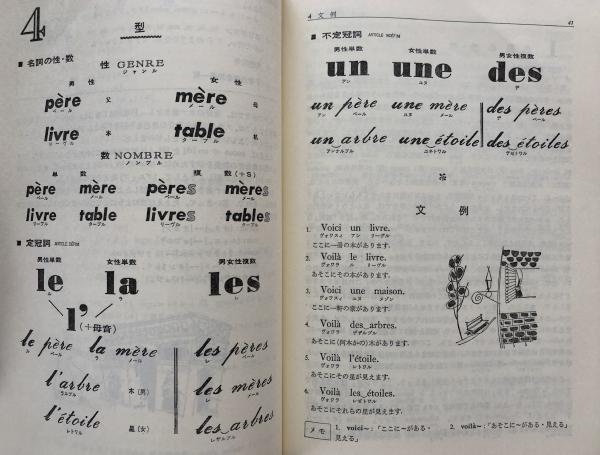 4
型
■ 名詞の性・数 性 GENRE
ジャンル
男性 女性
père 父 mère 母
ペール メール
livre 本 table 机
リーヴル ターブル
数 NOMBRE
ノンブル
単数 複数(+S)
père mère pères mères
ペール メール ペール メール
livre table livres tables
リーヴル ターブル リーヴル ターブル
■ 定冠詞 ARTICLE DÉFINI
男性単数 女性単数 男女性複数
le la les
ル ラ レ
l' (+母音)
le père la mère les pères
ル ペール ラ メール レ ペール
l'arbre 木(男) les mères
ラルブル レ メール
l'étoile 星(女) les arbres
レトワル レザルブル
4 文例 41
■ 不定冠詞 ARTICLE INDÉFINI
男性単数 女性単数 男女性複数
un une des
アン ユヌ デ
un père une mère des pères
アン ペール ユヌ メール デ ペール
un arbre une étoile des étoiles
アンナルブル ユネトワル デゼトワル
文例
1. Voici un livre.
ヴォワスィ アン リーヴル
ここに一冊の本があります.
2. Voilà le livre.
ヴォワラ ル リーヴル
あそこにその本があります.
3. Voici une maison.
ヴォワスィ ユヌ メゾン
ここに一軒の家があります.
4. Voilà des arbres.
ヴォワラ デザルブル
あそこに(何本かの)木があります.
5. Voilà l'étoile.
ヴォワラ レトワル
あそこにその星が見えます.
6. Voilà les étoiles.
ヴォワラ レゼトワル
あそこにそれらの星が見えます.
メモ 1. voici~:「ここに~がある・見える」 2. voilà~:「あそこに~がある・見える」